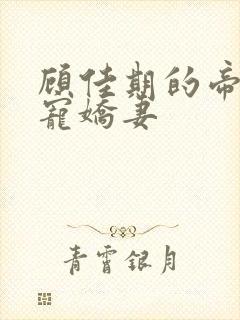 顾佳期的帝
宠娇妻
青霄银月